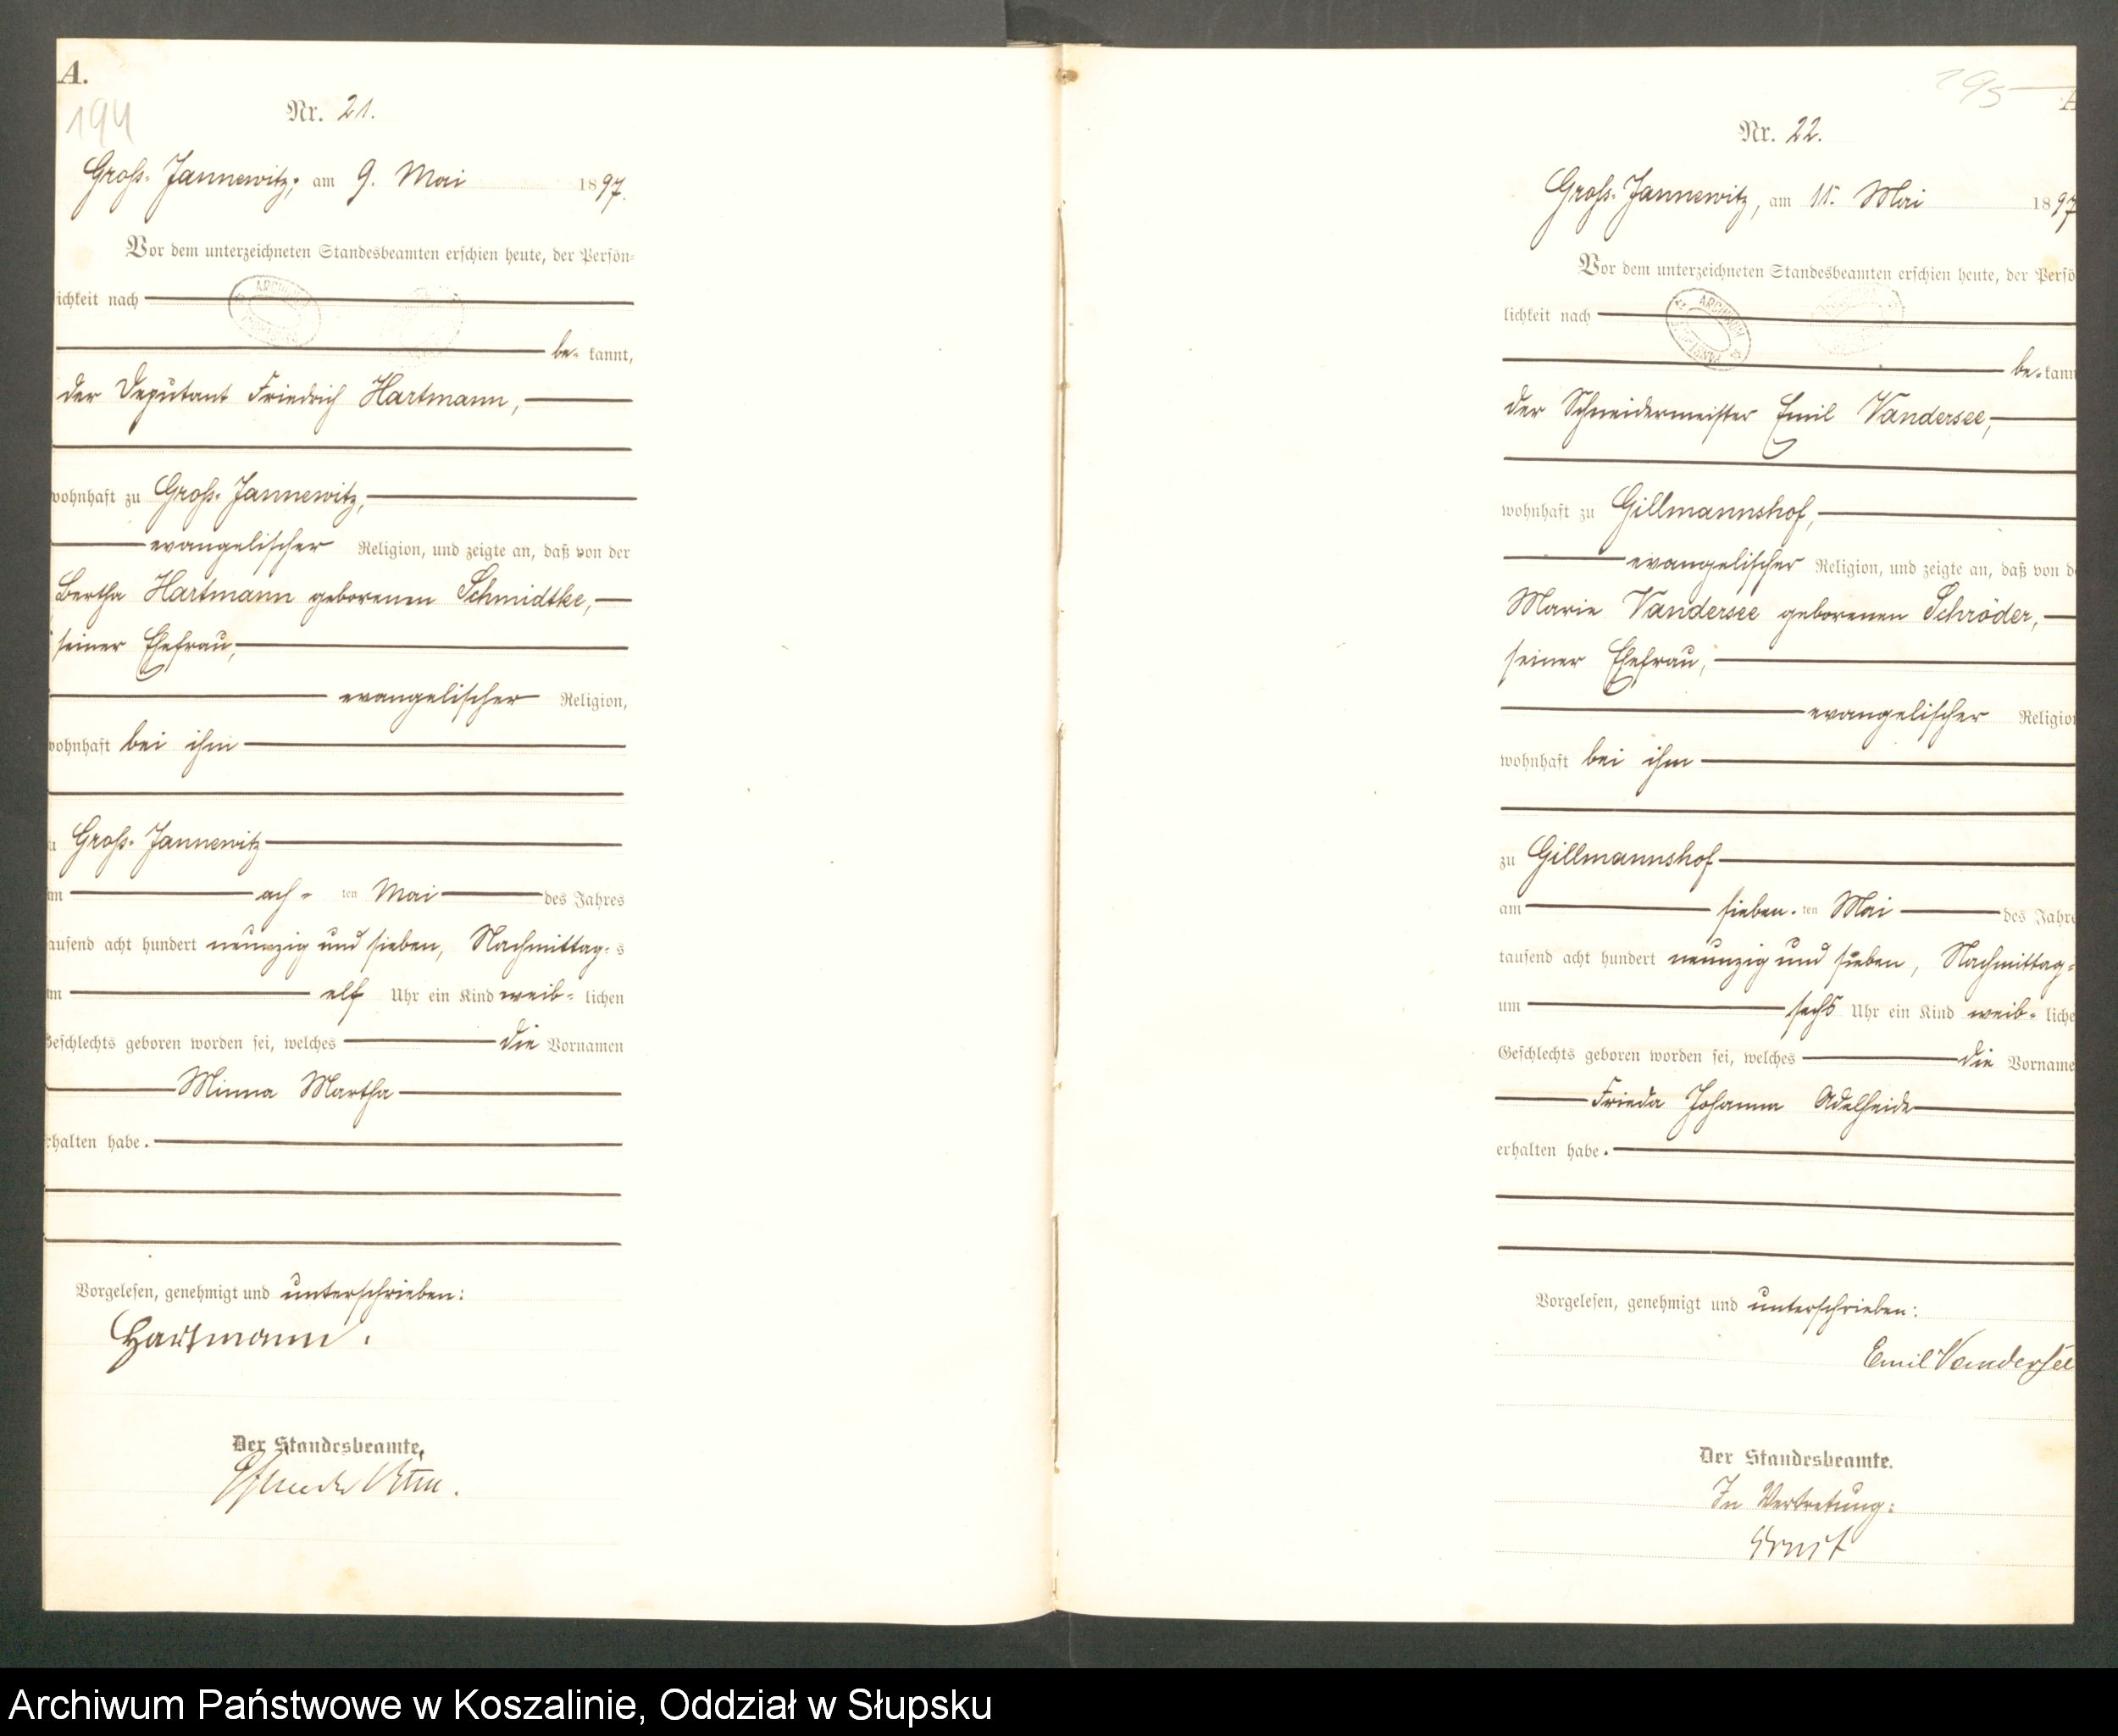 A.
194
Nr. 21.
Groß-Jannewitz, am 9. Mai 1897.
Vor dem unterzeichneten Standesbeamten erschien heute, der Persön-
lichkeit nach
be- kannt,
der Deputant Friedrich Hartmann,
wohnhaft zu Groß-Jannewitz,
evangelischer Religion, und zeigte an, daß von der
Bertha Hartmann geborenen Schmidtke,
seiner Ehefrau,
evangelischer Religion,
wohnhaft bei ihm
zu Groß-Jannewitz
am ach- ten Mai des Jahres
tausend acht hundert neunzig und sieben, Nachmittag- s
um elf Uhr ein Kind weib- lichen
Geschlechts geboren worden sei, welches die Vornamen
Minna Martha
erhalten habe.
Vorgelesen, genehmigt und unterschrieben:
Hartmann.
Der Standesbeamte.
195
A
Nr. 22.
Groß-Jannewitz, am 11. Mai 1897
Vor dem unterzeichneten Standesbeamten erschien heute, der Persö
lichkeit nach
ARCHIWUM
be- kann
der Schneidermeister Emil Vandersee,
wohnhaft zu Gillmannshof,
evangelischer Religion, und zeigte an, daß von d
Marie Vandersee geborenen Schröder,
seiner Ehefrau,
evangelischer Religion
wohnhaft bei ihm
zu Gillmannshof
am sieben- ten Mai des Jahre
tausend acht hundert neunzig und sieben, Nachmittag-
um sechs Uhr ein Kind weib- liche
Geschlechts geboren worden sei, welches die Vorname
Frieda Johanna Adelheide
erhalten habe.
Vorgelesen, genehmigt und unterschrieben:
Emil Vandersee
Der Standesbeamte.
In Vertretung:
Ernst
Archiwum Państwowe w Koszalinie, Oddział w Słupsku